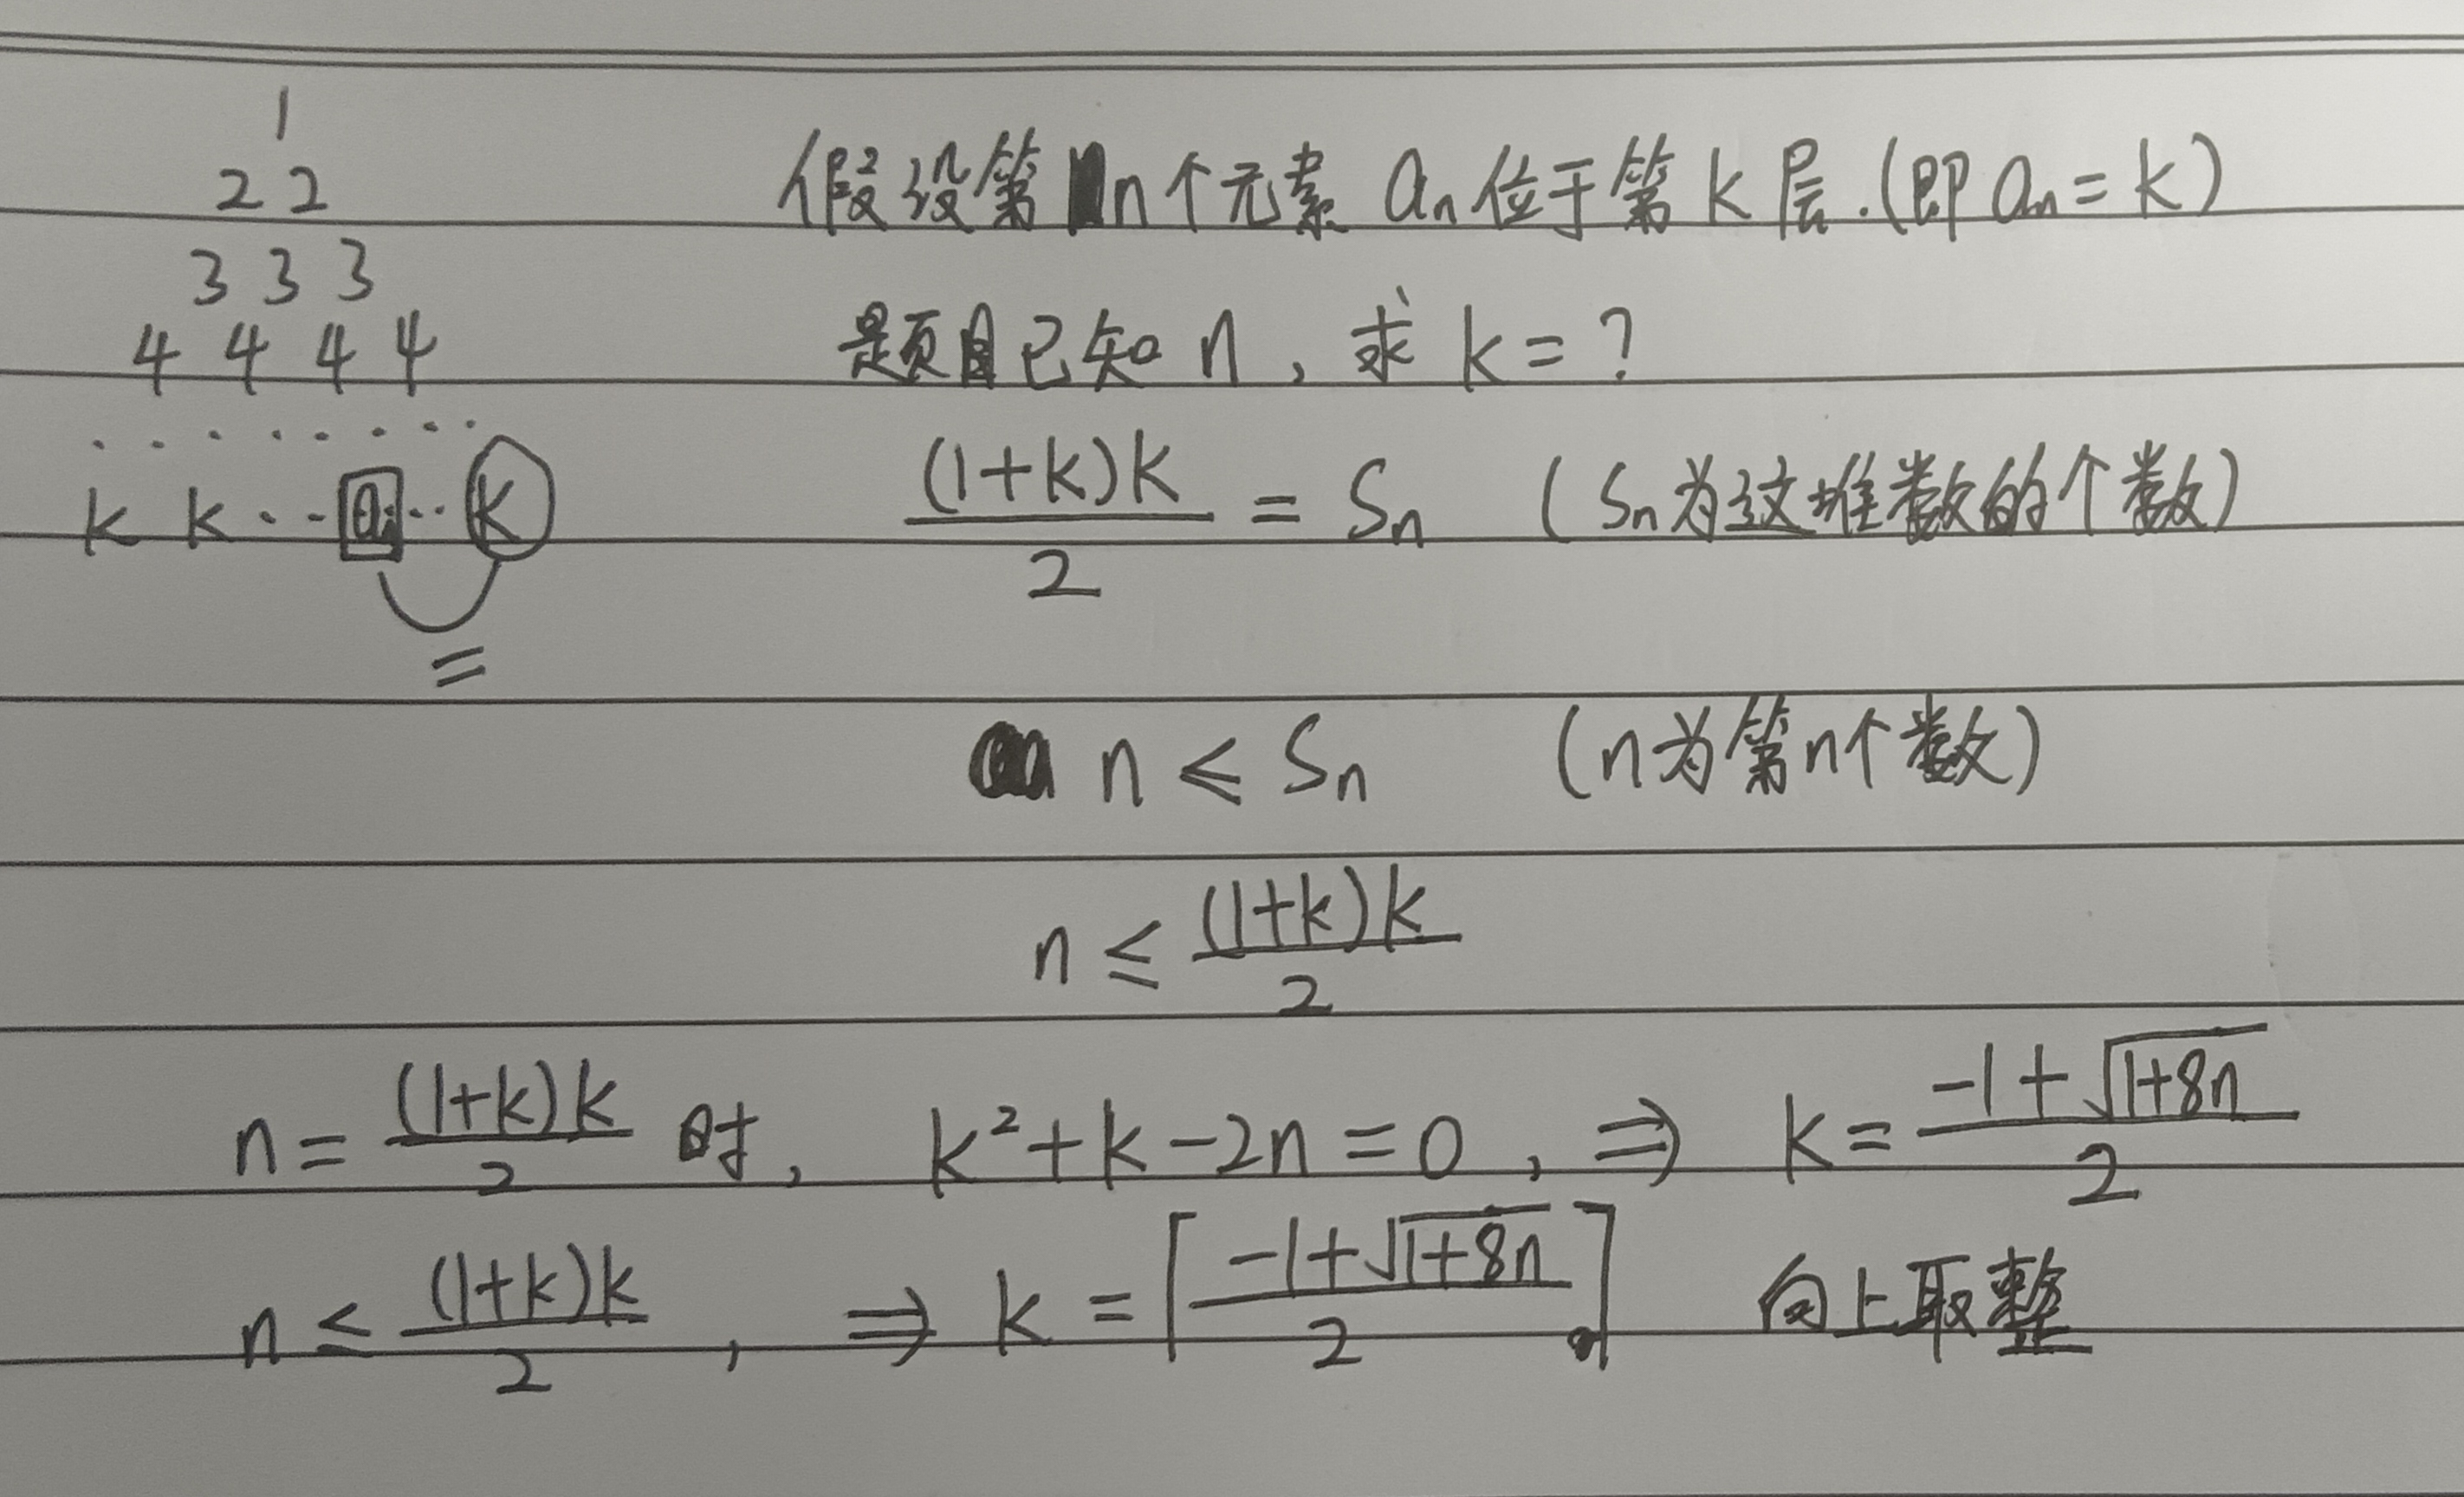 1
2 2
3 3 3
4 4 4 4
. . . . . . . .
k k . . . . k
=
假设第n个元素 aₙ 位于第 k 层.(即 aₙ = k)
题目已知 n , 求 k = ?
(1+k)k / 2 = Sₙ (Sₙ为这堆数的个数)
n ≤ Sₙ (n为第n个数)
n ≤ (1+k)k / 2
n = (1+k)k / 2 时, k² + k - 2n = 0 , ⇒ k = (-1 + √(1+8n)) / 2
n ≤ (1+k)k / 2 , ⇒ k = ⌈(-1 + √(1+8n)) / 2⌉ 向上取整